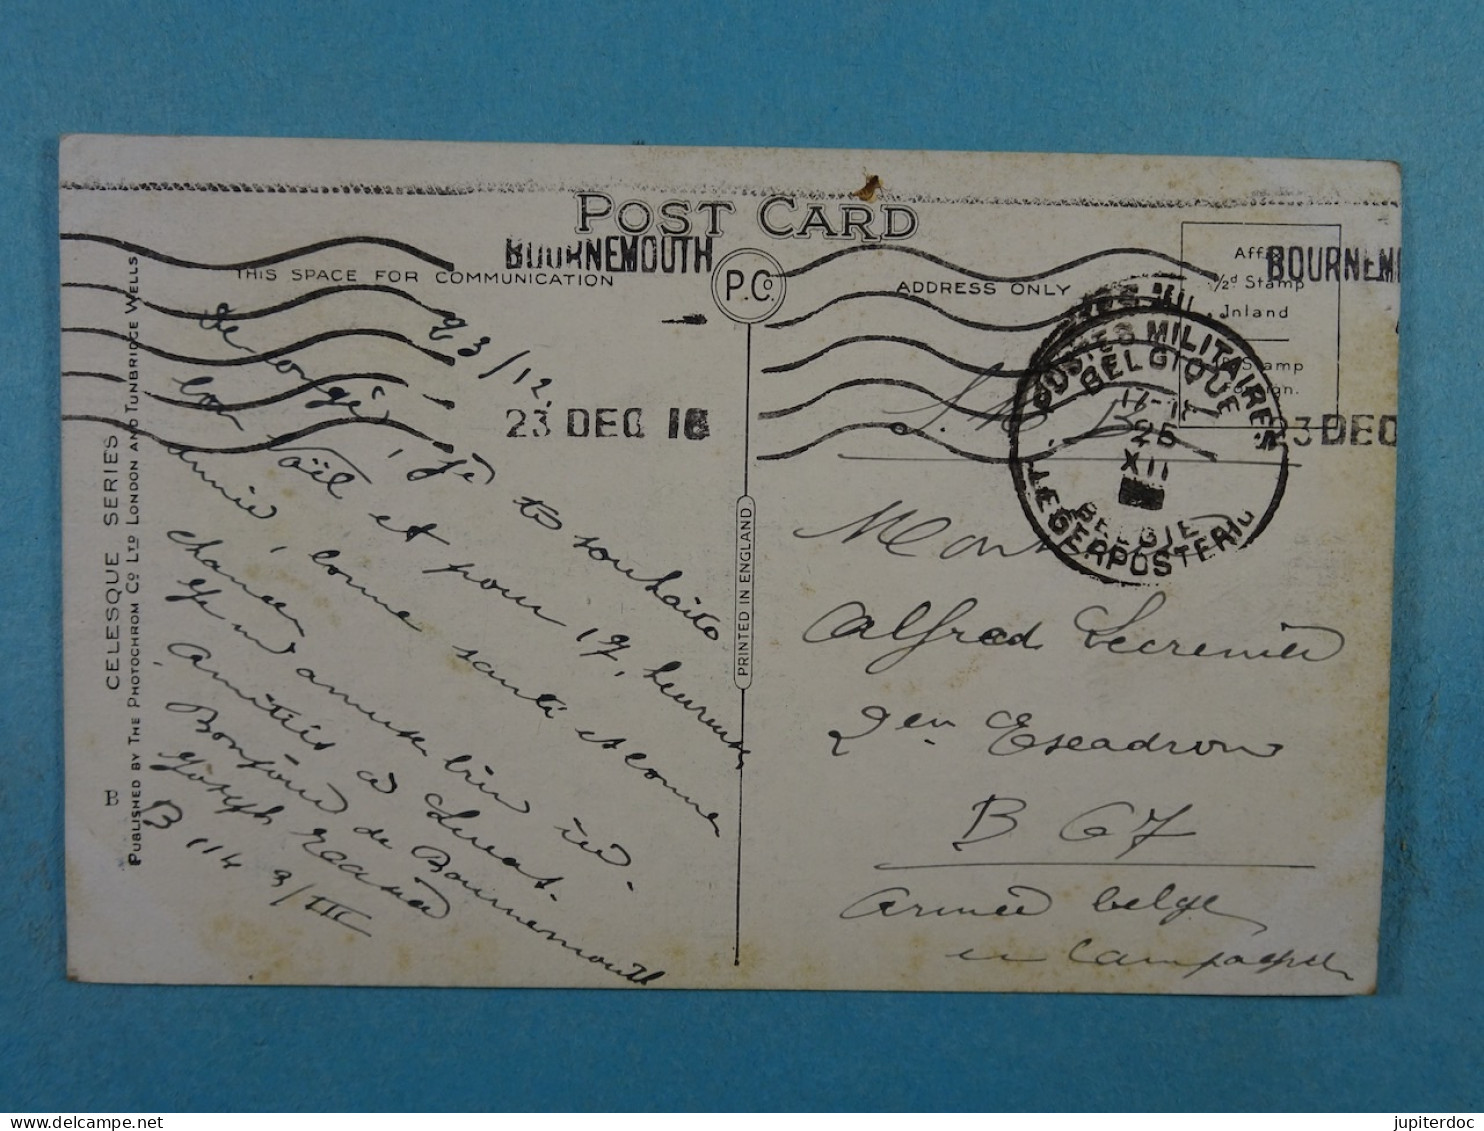 POST CARD
THIS SPACE FOR COMMUNICATION
P. Co.
ADDRESS ONLY
½d Stamp
Inland
BOURNEMOUTH
23 DEC 16
BOURNEM
23 DEC
POSTES MILITAIRES
BELGIQUE
25
XII
BELGIE
LEGERPOSTERIJ
PRINTED IN ENGLAND
CELESQUE SERIES
B
PUBLISHED BY THE PHOTOCHROM Co LTD LONDON AND TUNBRIDGE WELLS
23/12.
je te souhaite
bon Noël et pour 17, heureuse
année, bonne santé et bonne
chance
amuse bien ici.
Amitiés à
Bonjour de Bournemouth
Joseph
B 114 3/III
S.M. B
Alfred Lecrenier
2en Escadron
B 67
Armée belge
en Campagne
jupiterdoc